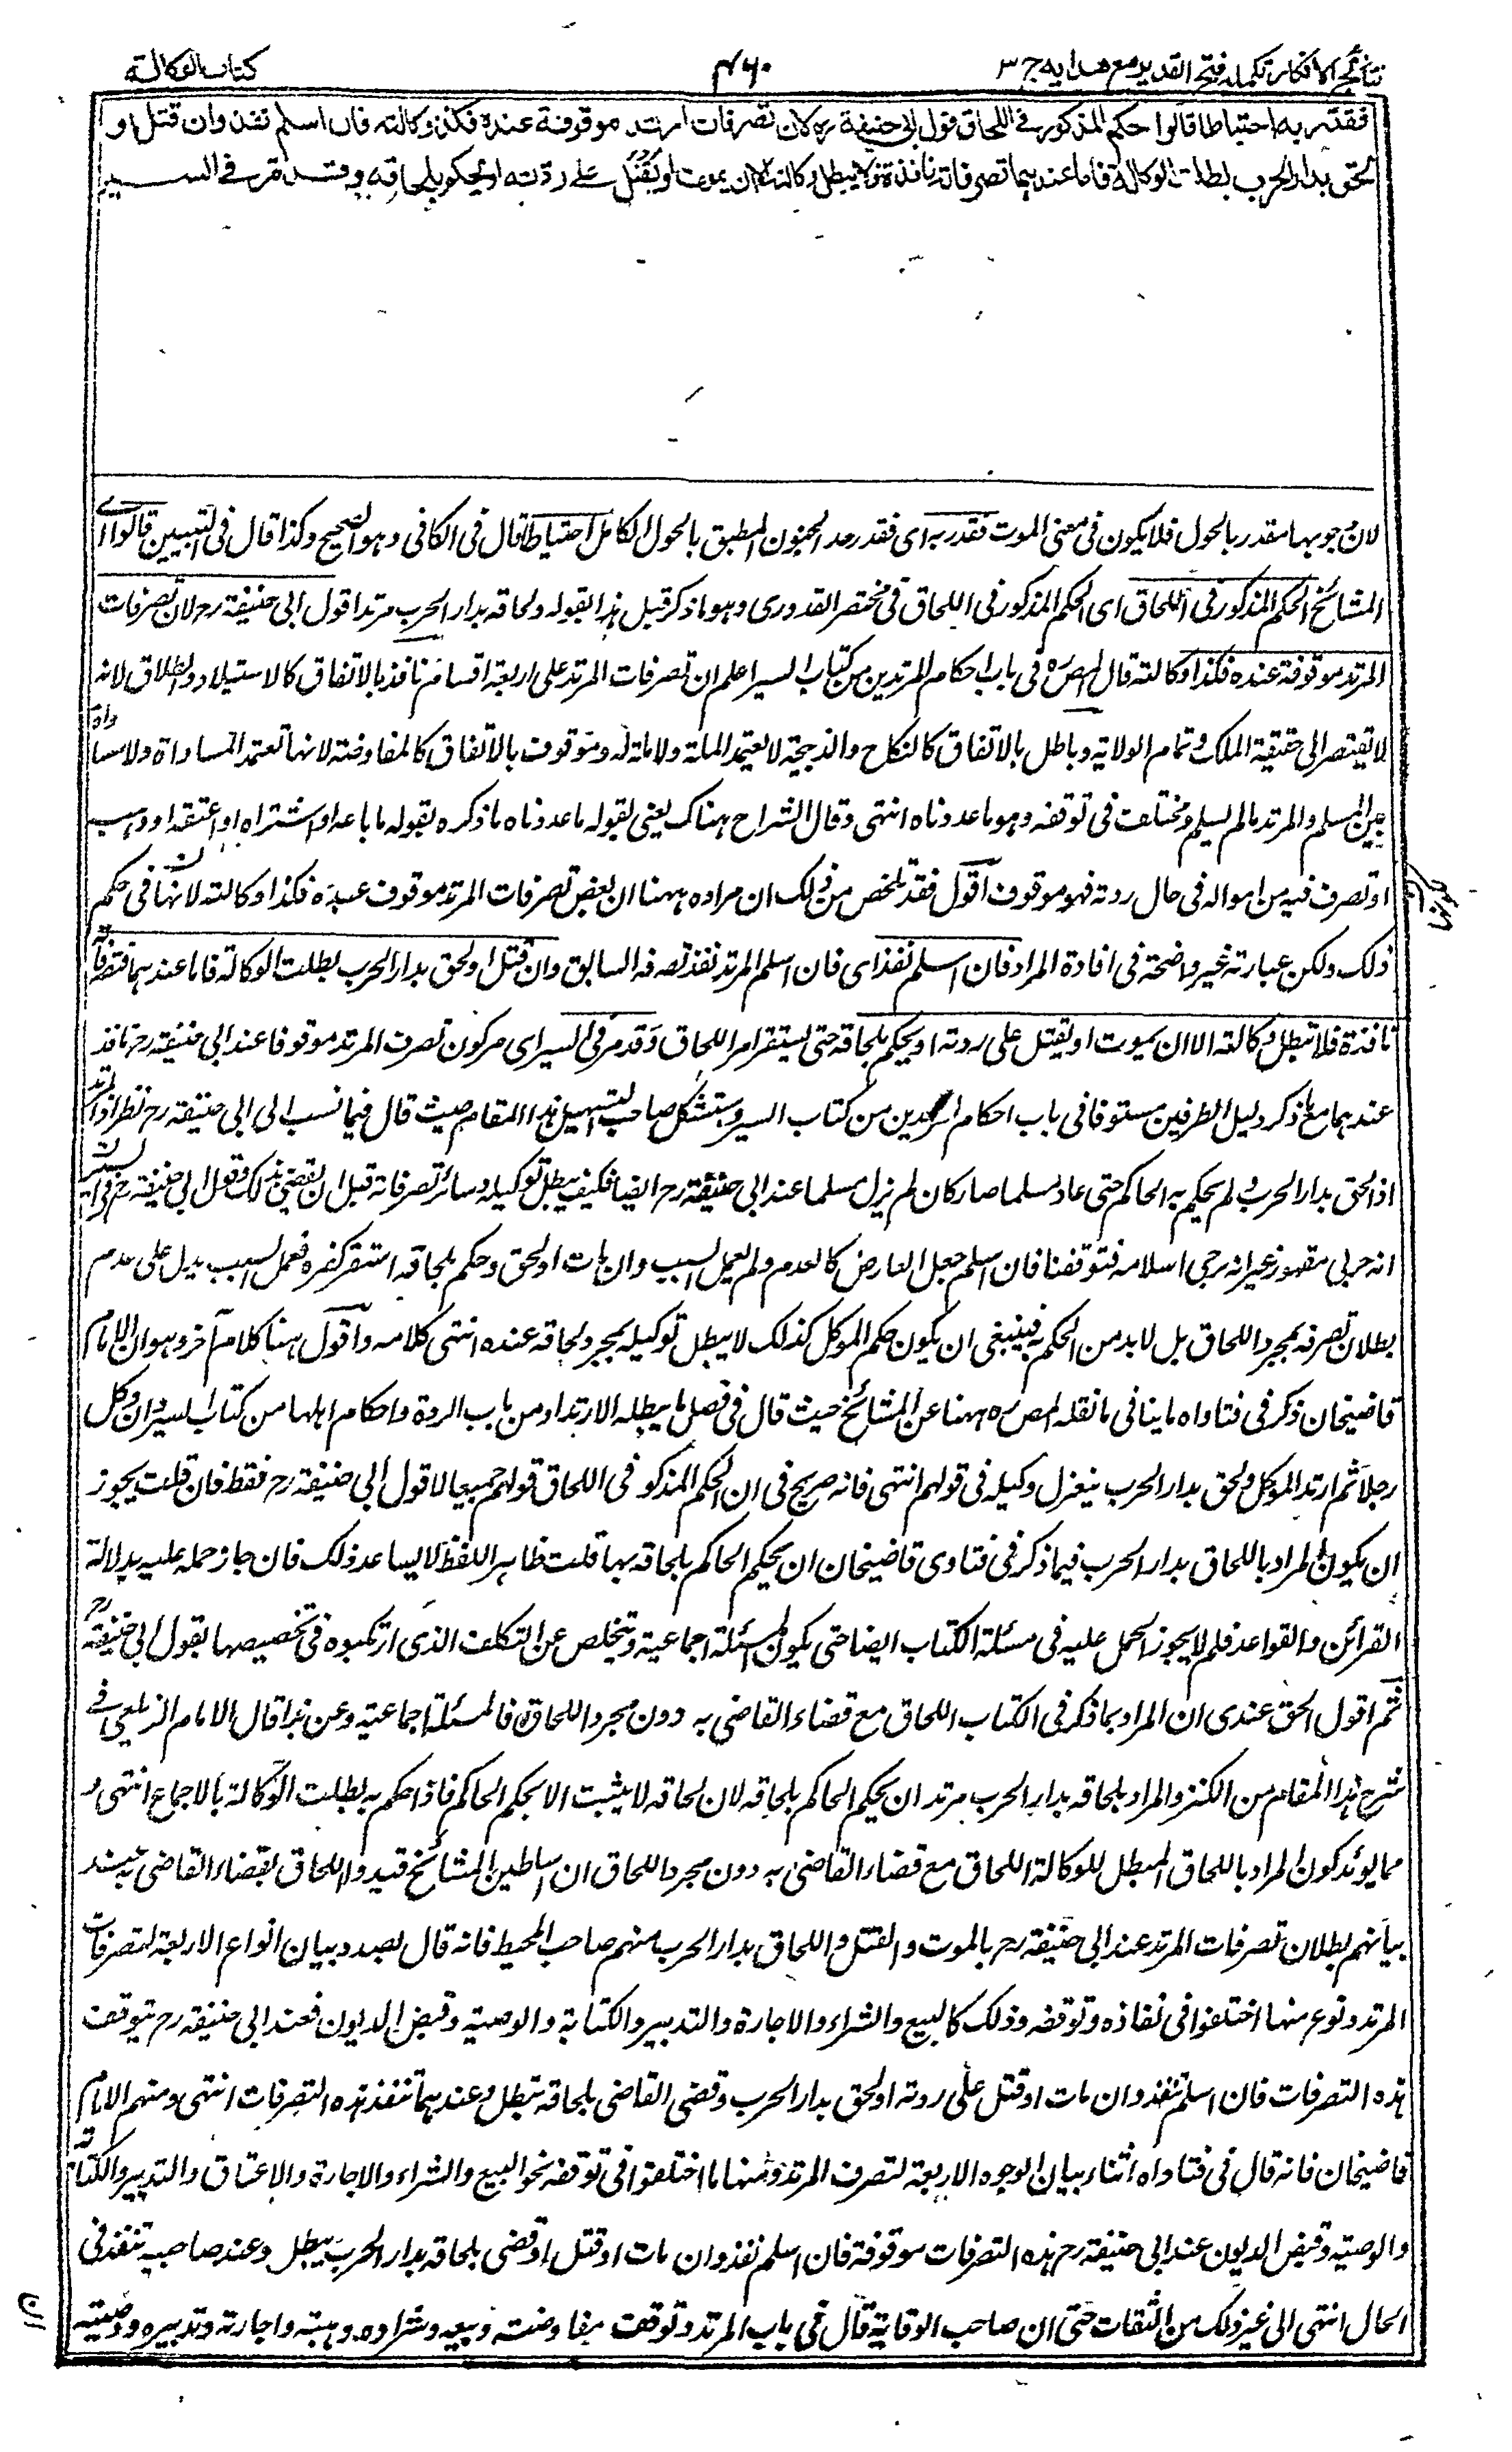 نتائج الافكار تكمله فتح القدير مع هدايه ج ٣
٤٦٠
كتاب الوكالة
فقدر به احتياطا قالوا حكم المذكور في اللحاق قول ابي حنيفة ره لان تصرفات المرتد موقوفة عنده فكذا وكالته فان اسلم نفذ وان قتل او
لحق بدار الحرب بطلت الوكالة فاما عندهما تصرفاته نافذة فلا يبطل وكالته الا ان يموت او يقتل على ردته او يحكم بلحاقه وقد مر في السير
لان وجوبها مقدر بالحول فلا يكون في معنى الموت فقدر به اى فقدر حد الجنون المطبق بالحول الكامل احتياطا قال في الكافي وهو الصحيح وكذا قال في التبيين قالوا اى
المشائخ الحكم المذكور في اللحاق اى الحكم المذكور في اللحاق في مختصر القدورى وهو ما ذكر قبل هذا بقوله ولحاقه بدار الحرب مرتدا قول ابي حنيفة رح لان تصرفات
المرتد موقوفة عنده فكذا وكالته قال المص ره في باب احكام المرتدين من كتاب السير اعلم ان تصرفات المرتد على اربعة اقسام نافذ بالاتفاق كالاستيلاد والطلاق لانه
لا يفتقر الى حقيقة الملك وتمام الولاية وباطل بالاتفاق كالنكاح والذبيحة لانه يعتمد الملة ولا ملة له وموقوف بالاتفاق كالمفاوضة لانها تعتمد المساواة ولا مساواة
بين المسلم والمرتد ما لم يسلم ومختلف في توقفه وهو ما عددناه انتهى وقال الشراح هناك يعني بقوله ما عددناه ما ذكره بقوله ما باعه او اشتراه او اعتقه او وهب
او تصرف فيه من امواله في حال ردته فهو موقوف اقول فقد تلخص من ذلك ان مراده ههنا ان بعض تصرفات المرتد موقوف عنده فكذا وكالته لانها في حكم
ذلك ولكن عبارته غير واضحة في افادة المراد فان اسلم نفذ اى فان اسلم المرتد نفذ تصرفه السابق وان قتل او لحق بدار الحرب بطلت الوكالة فاما عندهما فتصرفاته
نافذة فلا تبطل وكالته الا ان يموت او يقتل على ردته او يحكم بلحاقه حتى يستقر امر اللحاق وقد مر في السير اى مر كون تصرف المرتد موقوفا عند ابي حنيفة رح نافذ
عندهما مع ذكر دليل الطرفين مستوفا في باب احكام المرتدين من كتاب السير واستشكل صاحب التسهيل هذا المقام حيث قال فيما نسب الى ابي حنيفة رح نظر اذ المرتد
اذا لحق بدار الحرب ولم يحكم به الحاكم حتى عاد مسلما صار كان لم يزل مسلما عند ابي حنيفة رح ايضا فكيف يبطل توكيله وسائر تصرفاته قبل ان يقضى بذلك وقول ابي حنيفة رح في السير
انه حربي مقهور غير انه يرجى اسلامه فتوقفنا فان اسلم جعل العارض كالعدم ولم يعمل السبب وان مات او لحق وحكم بلحاقه استقر كفره فعمل السبب يدل على عدم
بطلان تصرفه بمجرد اللحاق بل لابد من الحكم به فينبغي ان يكون حكم الموكل كذلك لا يبطل توكيله بمجرد لحاقه عنده انتهى كلامه واقول هنا كلام آخر وهو ان الامام
قاضيخان ذكر في فتاواه ما ينافي ما نقله المص ره ههنا عن المشائخ حيث قال في فصل ما يبطله الارتداد من باب الردة واحكام اهلها من كتاب السير وان وكل
رجلا ثم ارتد الموكل ولحق بدار الحرب ينعزل وكيله في قولهم انتهى فانه صريح في ان الحكم المذكور في اللحاق قولهم جميعا لا قول ابي حنيفة رح فقط فان قلت يجوز
ان يكون المراد باللحاق بدار الحرب فيما ذكر في فتاوى قاضيخان ان يحكم الحاكم بلحاقه بها قلت ظاهر اللفظ لا يساعد ذلك فان جاز حمله عليه بدلالة
القرائن والقواعد فلم لا يجوز الحمل عليه في مسئلة الكتاب ايضا حتى يكون المسئلة اجماعية ويتخلص عن التكلف الذى ارتكبوه في تخصيصها بقول ابي حنيفة رح
ثم اقول الحق عندى ان المراد بما ذكر في الكتاب اللحاق مع قضاء القاضي به دون مجرد اللحاق فالمسئلة اجماعية وعن هذا قال الامام الزيلعي في
شرح هذا المقام من الكنز والمراد بلحاقه بدار الحرب مرتدا ان يحكم الحاكم بلحاقه لان لحاقه لا يثبت الا بحكم الحاكم فاذا حكم به بطلت الوكالة بالاجماع انتهى و
مما يؤيد كون المراد باللحاق المبطل للوكالة اللحاق مع قضاء القاضي به دون مجرد اللحاق ان اساطين المشائخ قيدوا اللحاق بقضاء القاضي به عند
بيانهم بطلان تصرفات المرتد عند ابي حنيفة رح بالموت والقتل واللحاق بدار الحرب منهم صاحب المحيط فانه قال بصدد بيان انواع الاربعة لتصرفات
المرتد ونوع منها اختلفوا في نفاذه وتوقفه وذلك كالبيع والشراء والاجارة والتدبير والكتابة والوصية وقبض الديون فعند ابي حنيفة رح يتوقف
هذه التصرفات فان اسلم تنفذ وان مات او قتل على ردته او لحق بدار الحرب وقضى القاضي بلحاقه تبطل وعندهما تنفذ هذه التصرفات انتهى ومنهم الامام
قاضيخان فانه قال في فتاواه اثناء بيان الوجوه الاربعة لتصرف المرتد ومنها ما اختلفوا في توقفه نحو البيع والشراء والاجارة والاعتاق والتدبير والكتابة
والوصية وقبض الديون عند ابي حنيفة رح هذه التصرفات موقوفة فان اسلم نفذ وان مات او قتل او قضى بلحاقه بدار الحرب يبطل وعند صاحبيه تنفذ في
الحال انتهى الى غير ذلك من الثقات حتى ان صاحب الوقاية قال في باب المرتد وتوقف مفاوضته وبيعه وشراءه وهبته واجارته وتدبيره ووصيته
ان